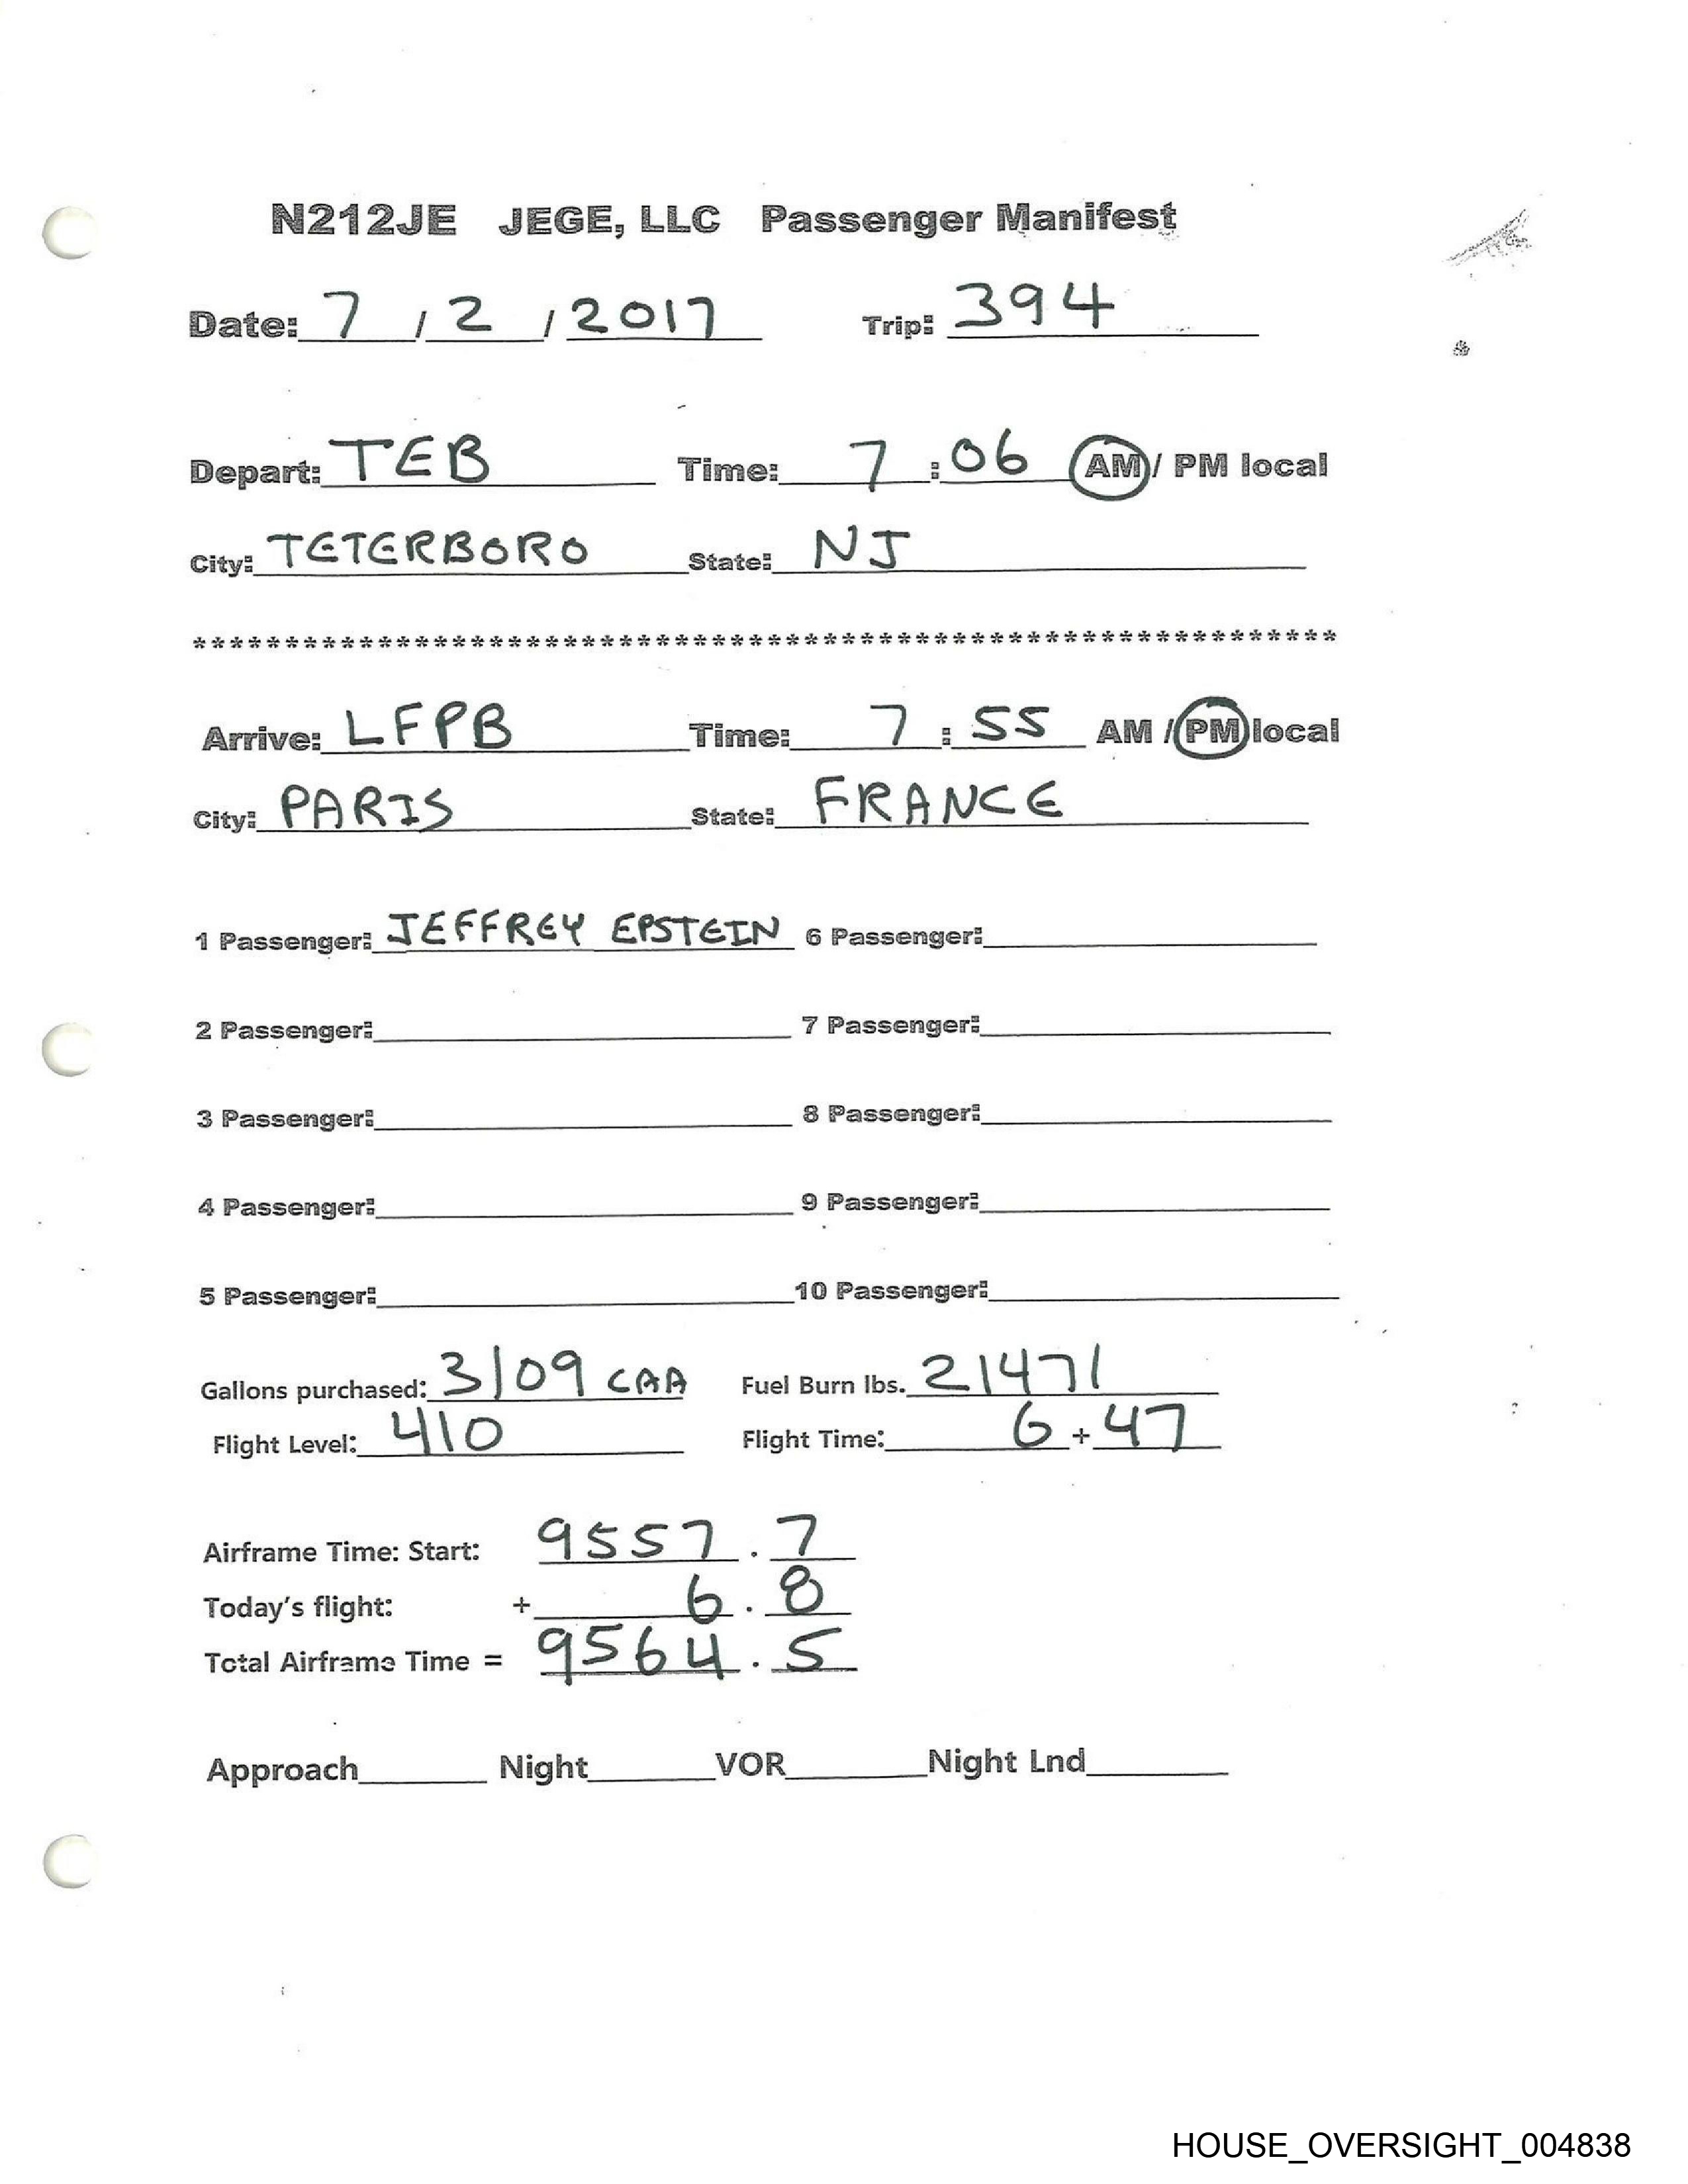 N212JE JEGE, LLC Passenger Manifest
Date: 7 / 2 / 2017 Trip: 394
Depart: TEB Time: 7 : 06 AM / PM local
City: TETERBORO State: NJ
**************************************************************
Arrive: LFPB Time: 7 : 55 AM / PM local
City: PARIS State: FRANCE
1 Passenger: JEFFREY EPSTEIN 6 Passenger:
2 Passenger: 7 Passenger:
3 Passenger: 8 Passenger:
4 Passenger: 9 Passenger:
5 Passenger: 10 Passenger:
Gallons purchased: 3109 CAA Fuel Burn lbs. 21471
Flight Level: 410 Flight Time: 6 + 47
Airframe Time: Start: 9557 . 7
Today's flight: + 6 . 8
Total Airframe Time = 9564 . 5
Approach Night VOR Night Lnd
HOUSE_OVERSIGHT_004838